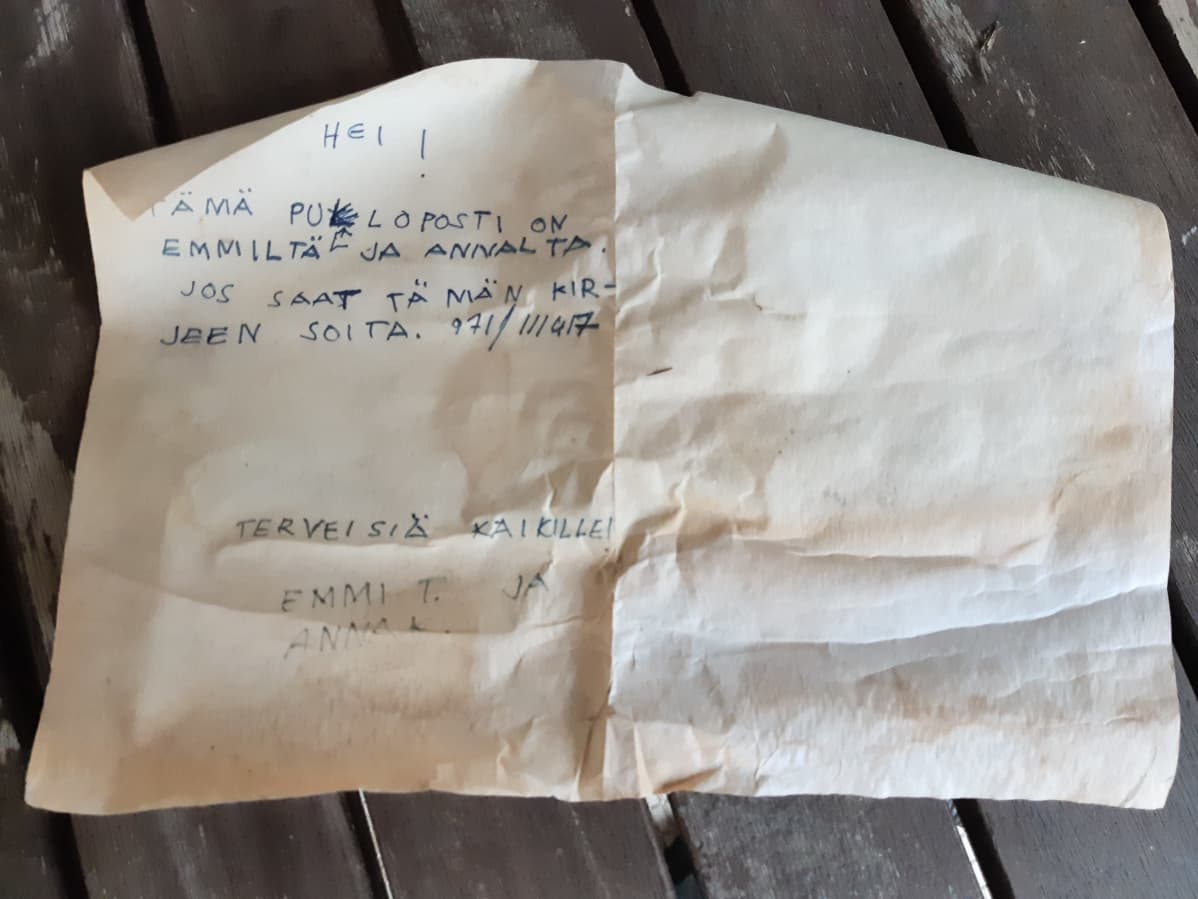 HEI!
TÄMÄ PULLOPOSTI ON
EMMILTÄ JA ANNALTA.
JOS SAAT TÄMÄN KIR-
JEEN SOITA. 971/111417
TERVEISIÄ KAIKILLE!
EMMI T. JA
ANNA K.